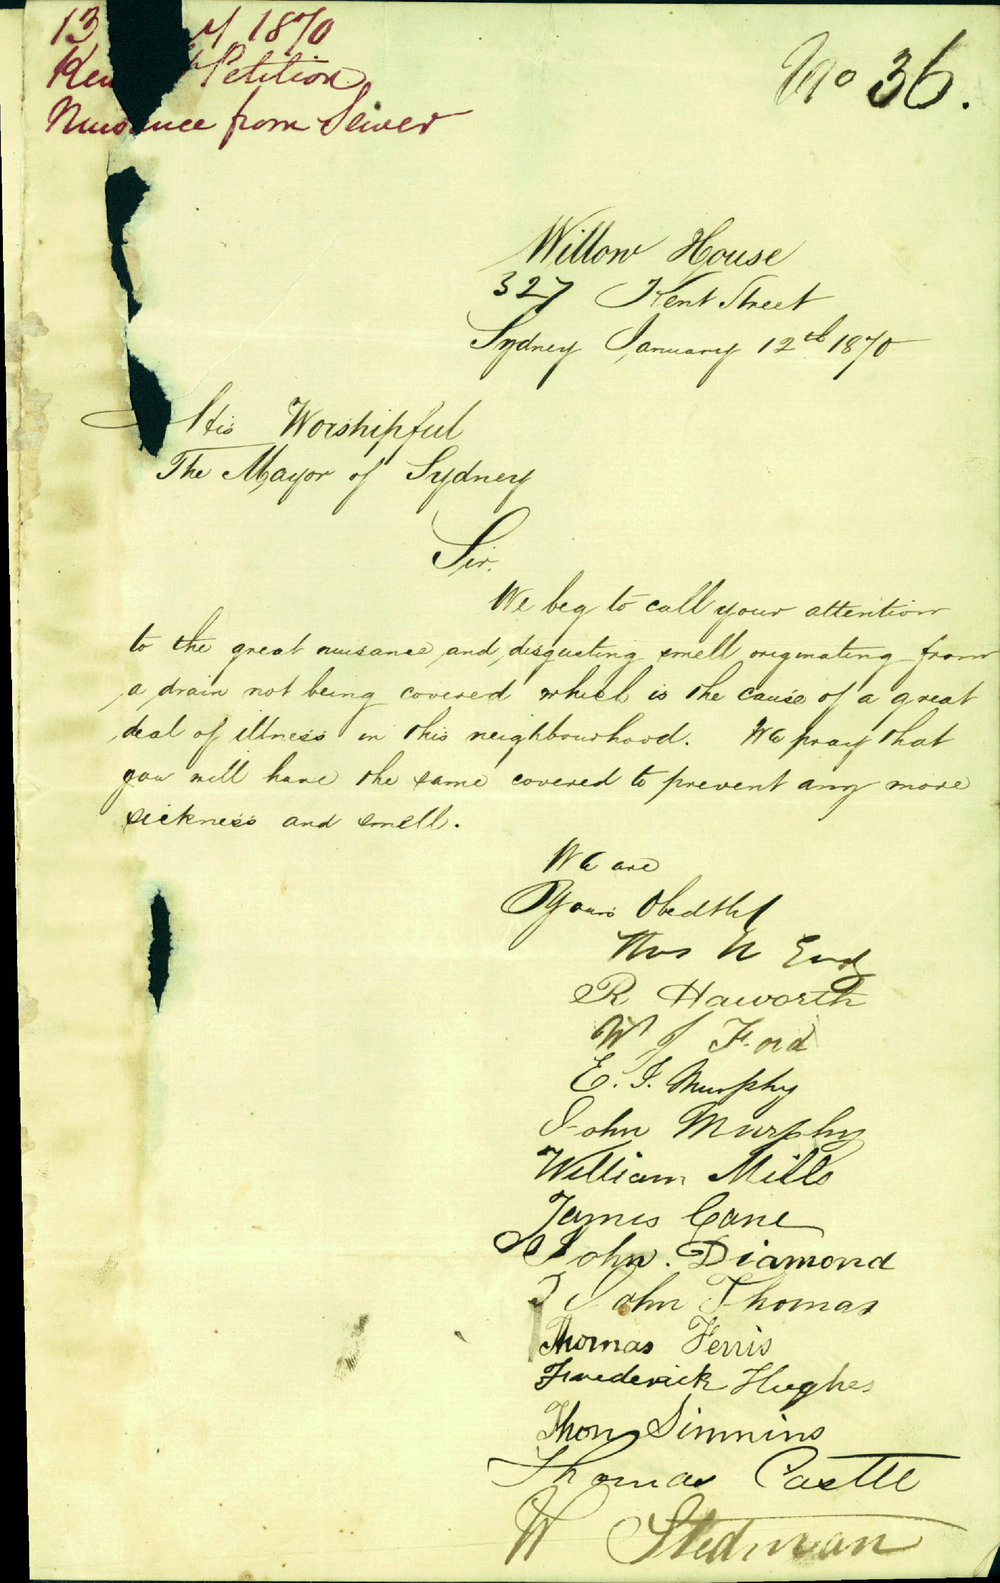 13 y 1870
Ken Petition
Nuisance from Sewer
No 36.
Willow House
327 Kent Street
Sydney January 12th 1870
His Worshipful
The Mayor of Sydney
Sir.
We beg to call your attention
to the great nuisance and disgusting smell originating from
a drain not being covered which is the cause of a great
deal of illness in this neighbourhood. We pray that
you will have the same covered to prevent any more
sickness and smell.
We are
Yours Obedthf
Thos N
R Haworth
W J Ford
E. J. Murphy
John Murphy
William Mills
James Cane
John. Diamond
John Thomas
Thomas Ferris
Frederick Hughes
Thos Simmins
Thomas Castle
W Stedman